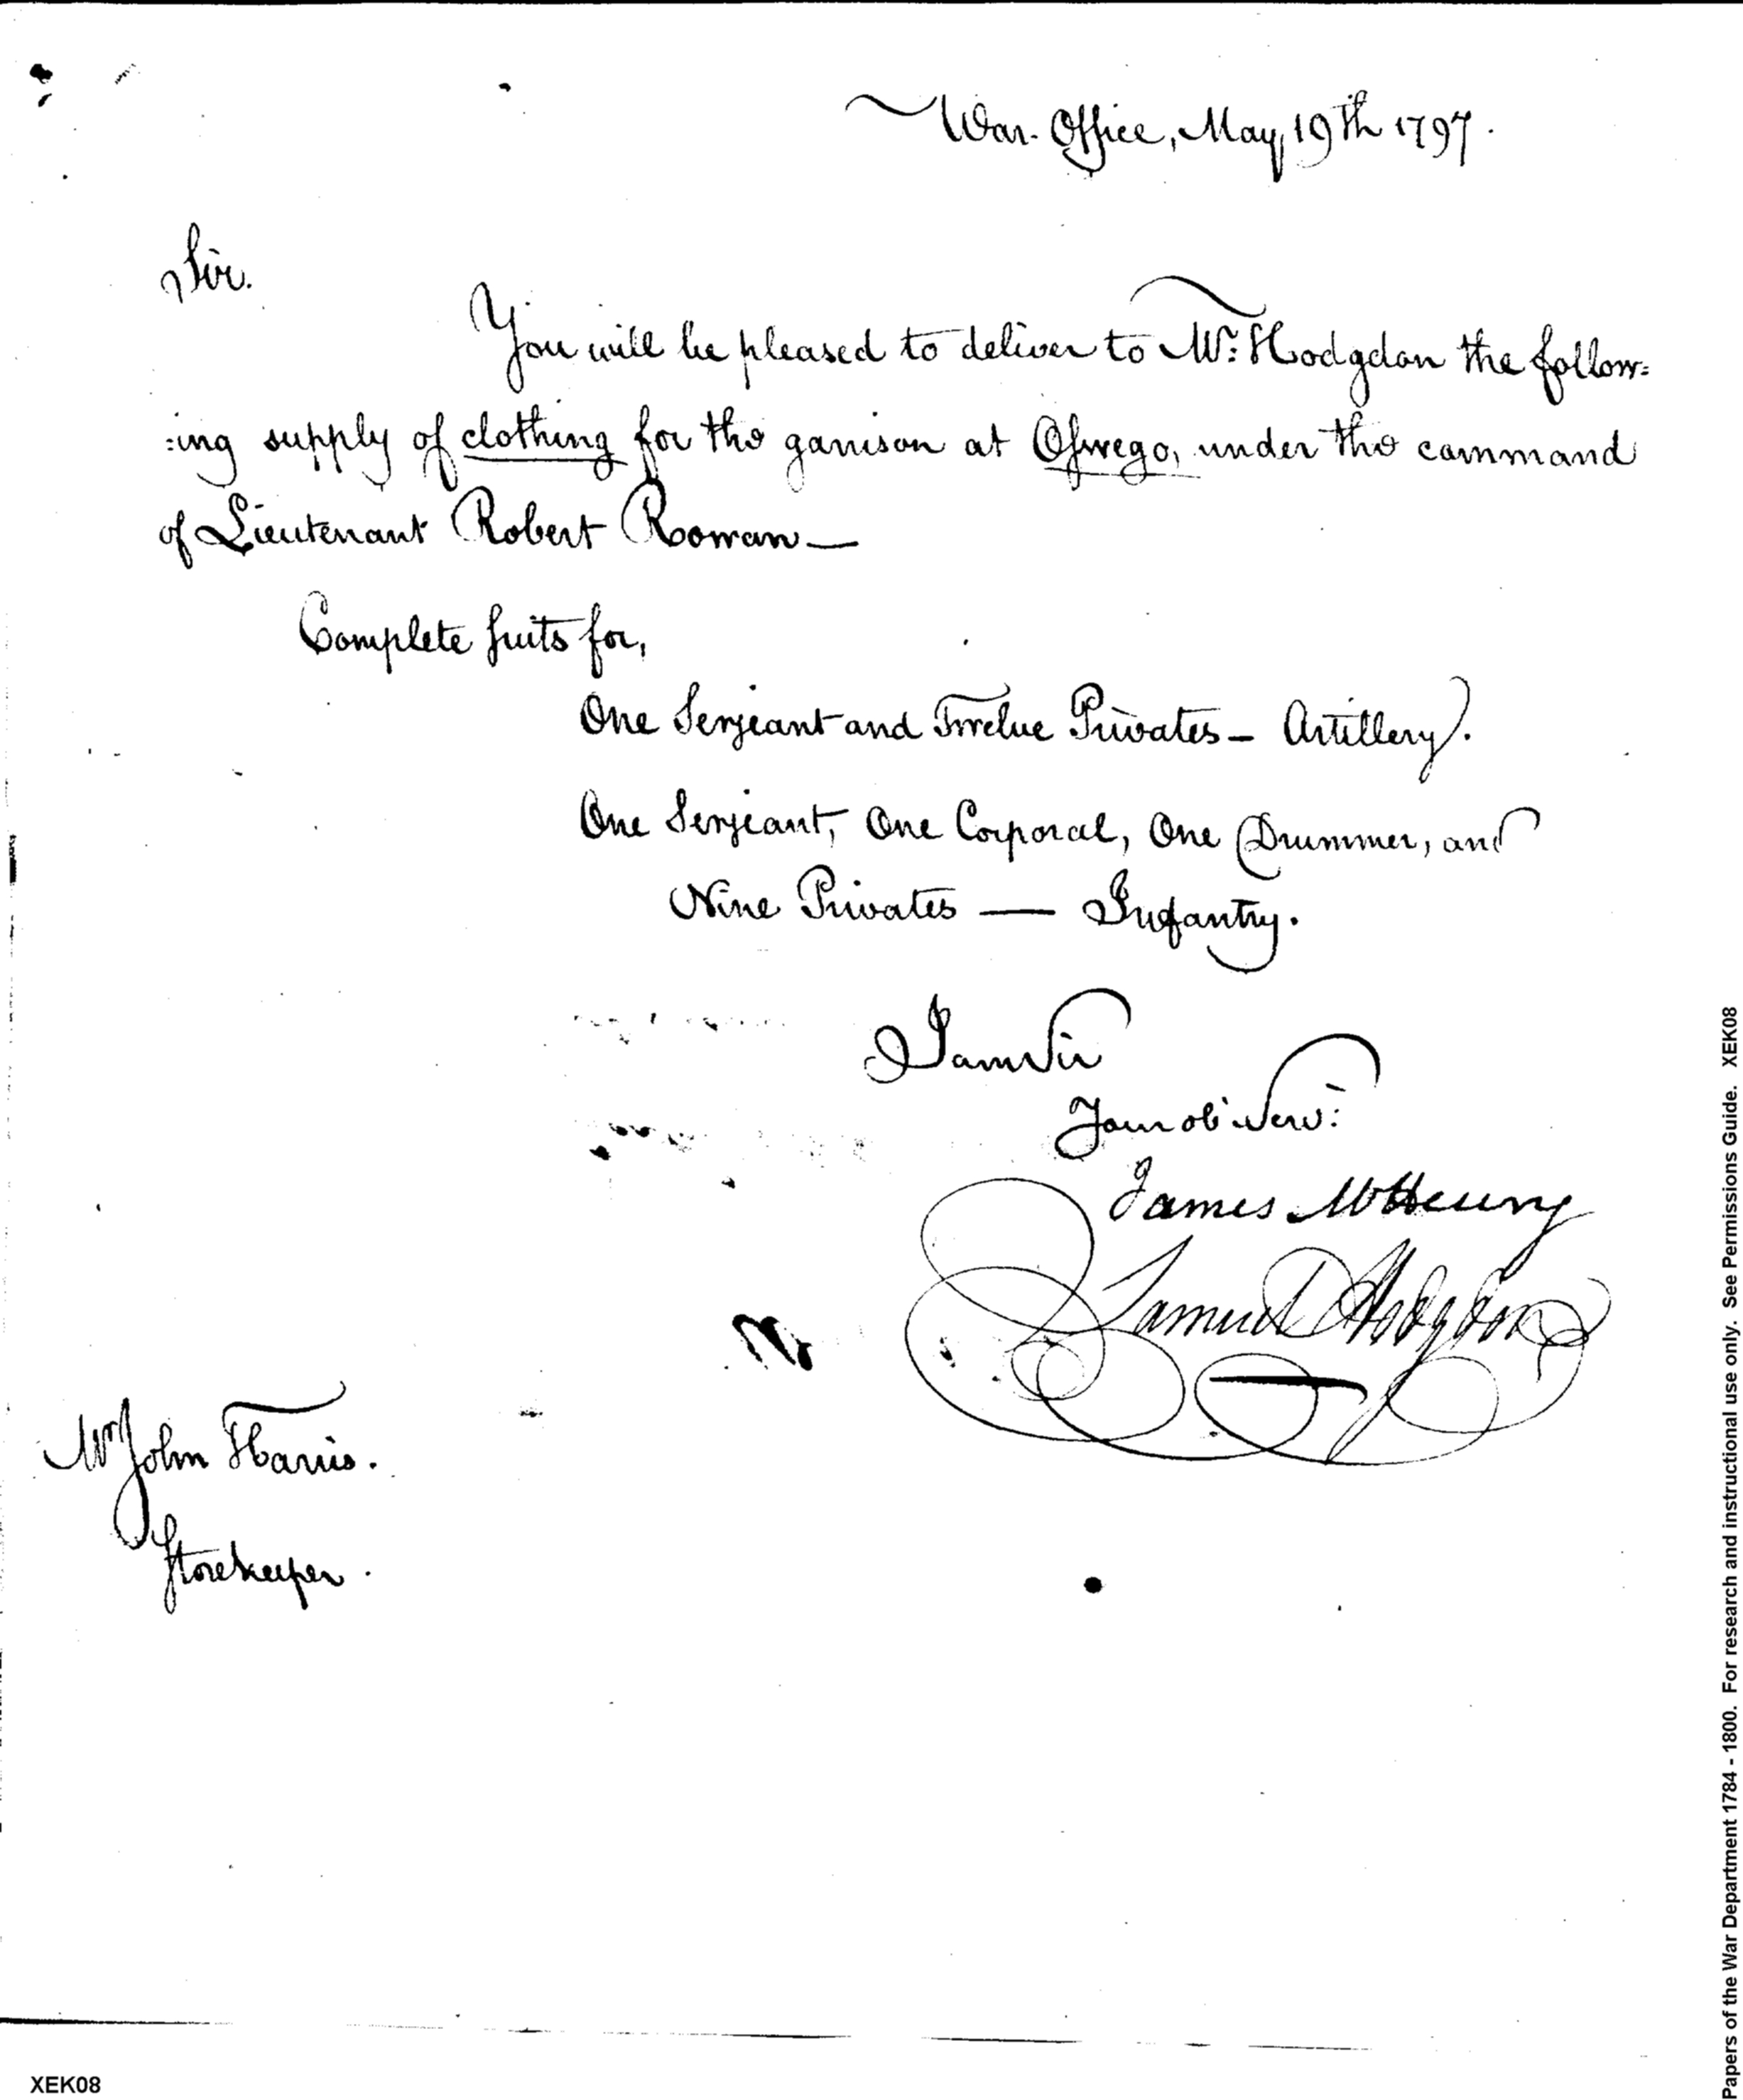 War Office, May, 19th 1797.
Sir.
You will be pleased to deliver to Mr: Hodgdon the follow=
=ing supply of clothing for the garrison at Oswego, under the command
of Lieutenant Robert Rowan—
Complete suits for,
One Serjeant and Twelve Privates — Artillery.
One Serjeant, One Corporal, One Drummer, and
Nine Privates — Infantry.
I am Sir
Your ob: Serv:
James McHenry
Samuel Hodgdon
Mr John Harris.
Storekeeper.
XEK08
Papers of the War Department 1784 - 1800. For research and instructional use only. See Permissions Guide. XEK08